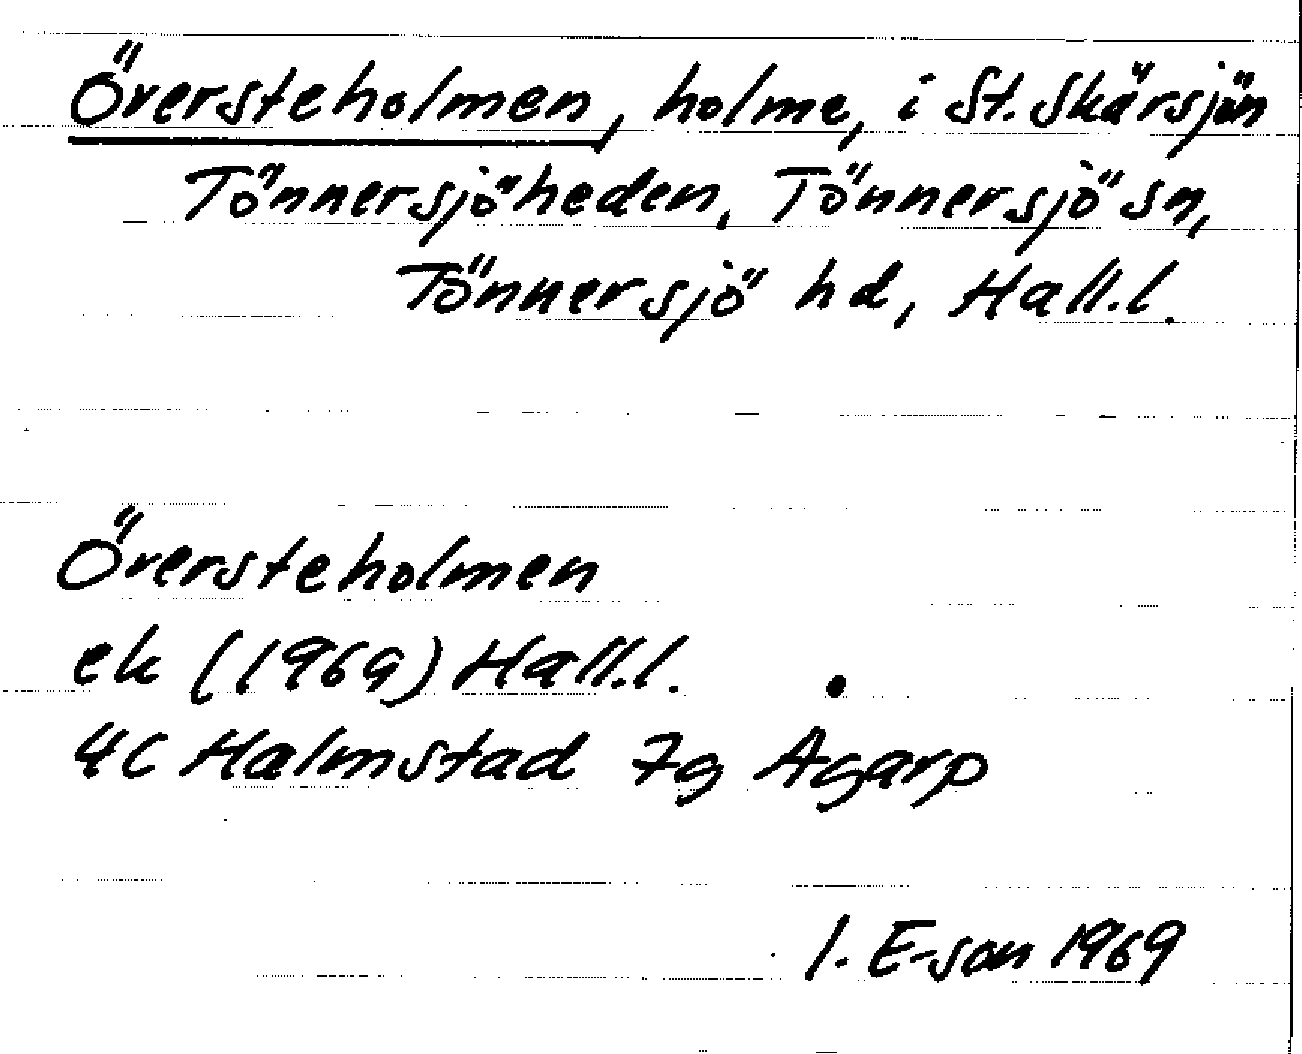 Översteholmen, holme, i St. Skärsjön
Tönnersjöheden, Tönnersjö sn,
Tönnersjö hd, Hall.l.
Översteholmen
ek (1969) Hall.l.
4C Halmstad 7g Agarp
I. E-son 1969